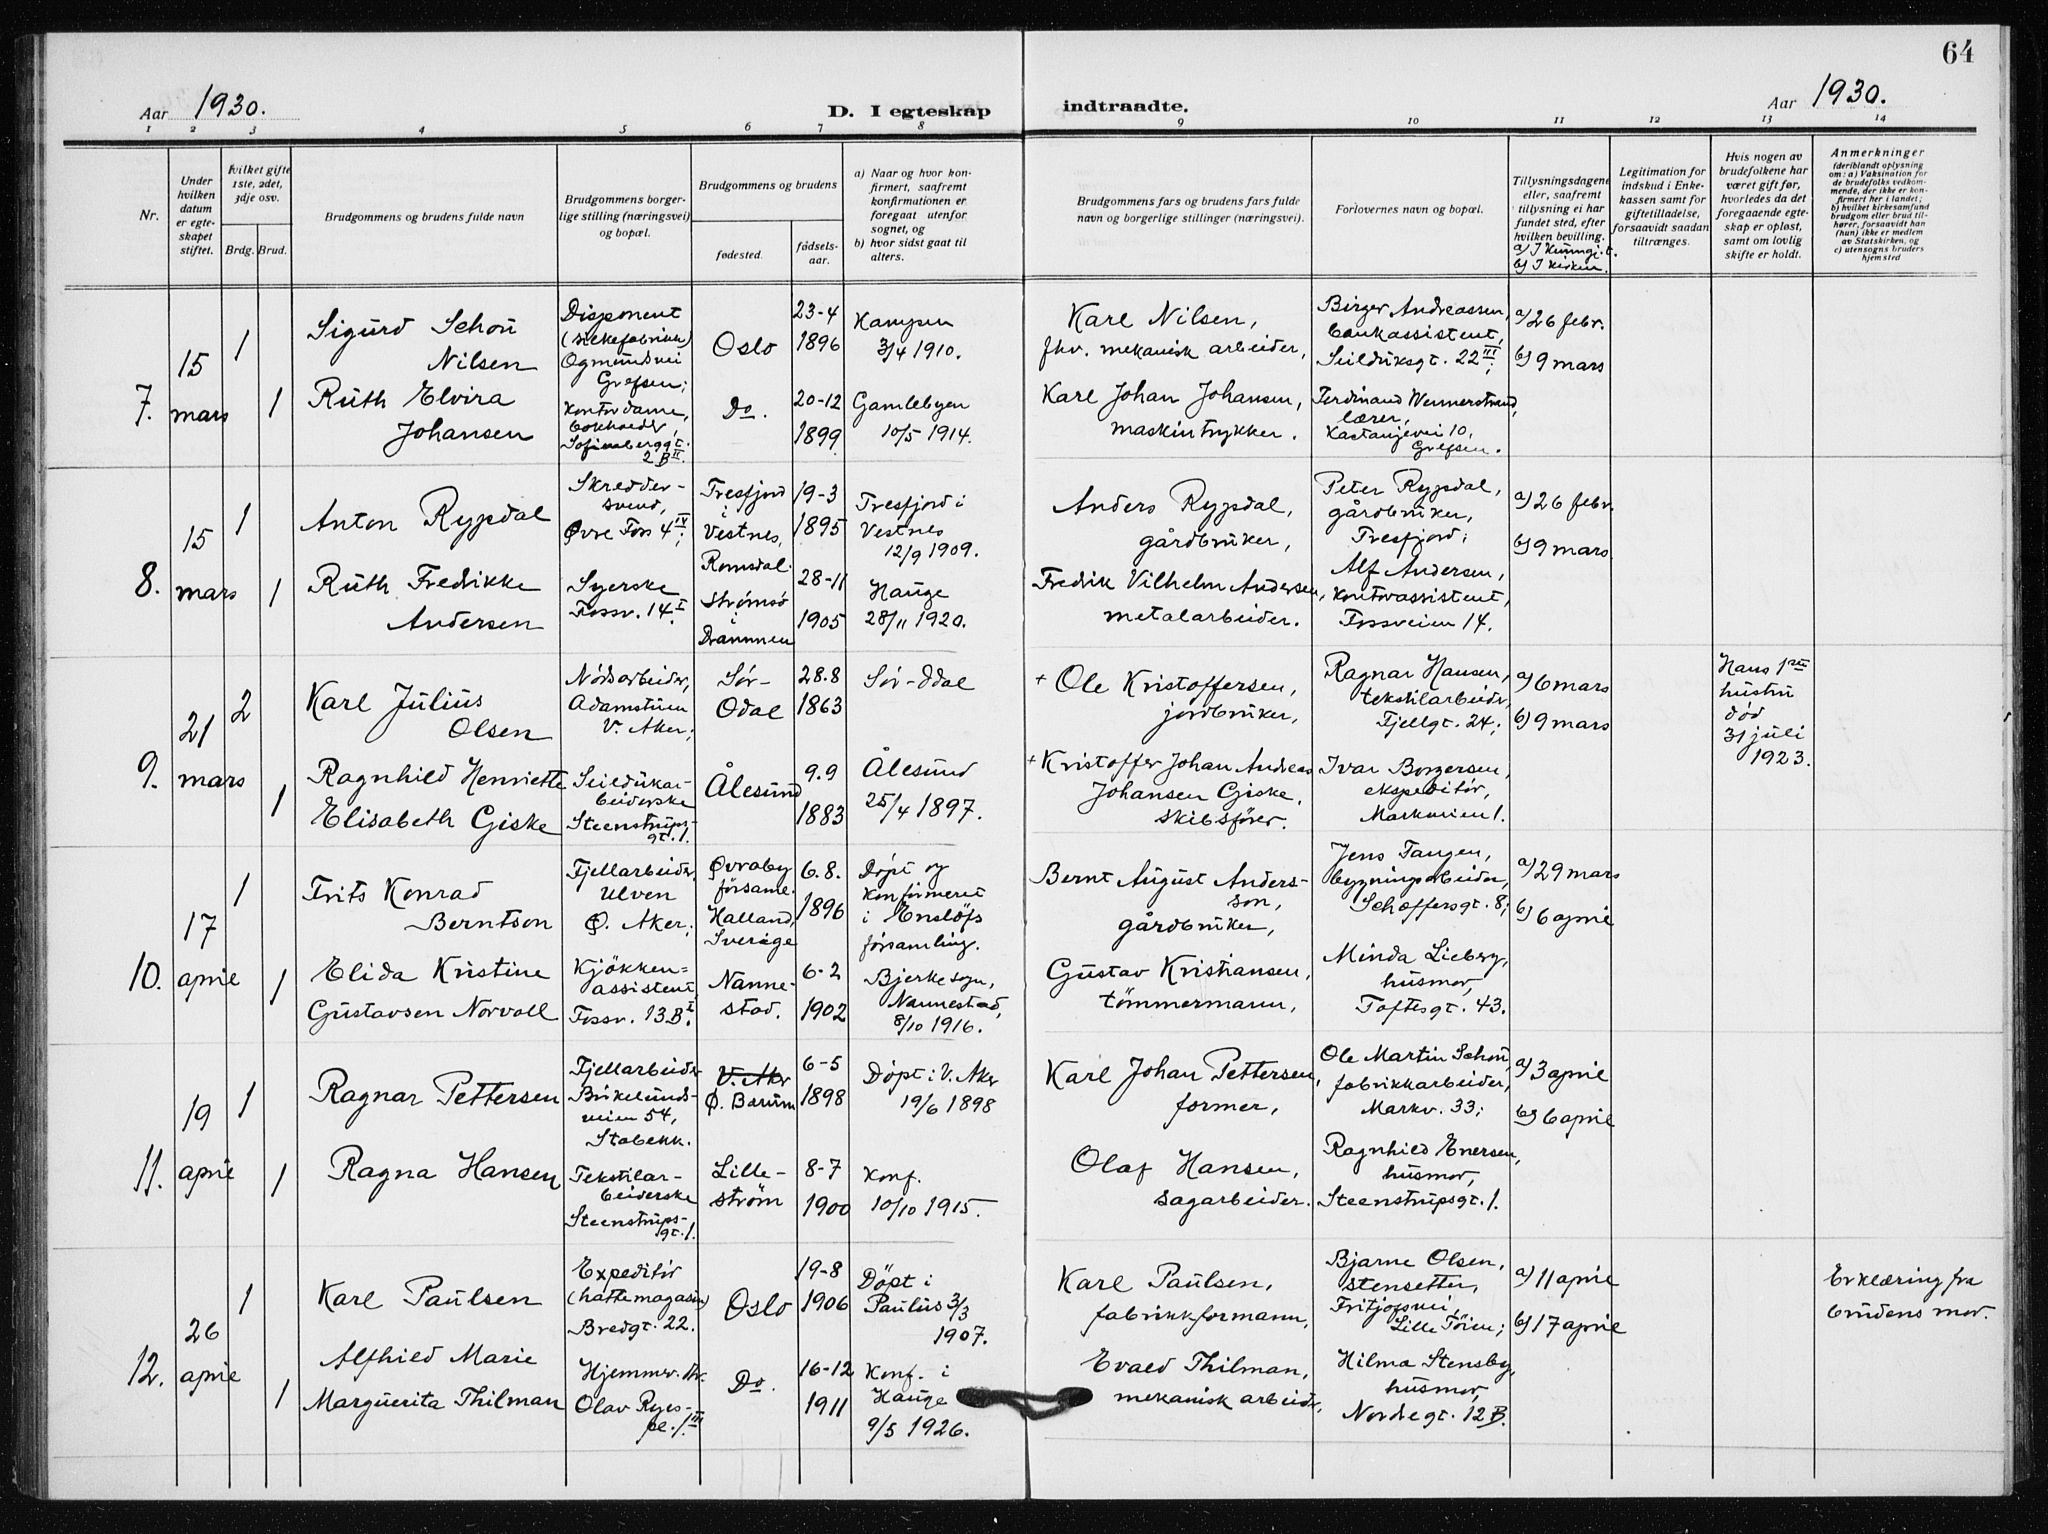 64
Aar 1930.
D. I egteskap
indtraadte.
Aar 1930.
1 2 3 4 5 6 7 8 9 10 11 12 13 14
Nr.
Under
hvilken
datum
er egte-
skapet
stiftet.
Hvilket gifte
1ste, 2det,
3dje osv.
Brdg. Brud.
Brudgommens og brudens fulde navn
Brudgommens borger-
lige stilling (næringsvei)
og bopæl.
Brudgommens og brudens
fødested.
fødsels-
aar.
a) Naar og hvor kon-
firmert, saafremt
konfirmationen er
foregaat utenfor
sognet, og
b) hvor sidst gaat til
alters.
Brudgommens fars og brudens fars fulde
navn og borgerlige stillinger (næringsvei).
Forlovernes navn og bopæl.
Tillysningsdagene
eller, saafremt
tillysning ei har
fundet sted, efter
hvilken bevilling.
b) I kirken.
Legitimation for
indskud i Enke-
kassen samt for
giftetilladelse,
forsaavidt saadan
tiltrænges.
Hvis nogen av
brudefolkene har
været gift før,
hvorledes da det
foregaaende egte-
skap er opløst,
samt om lovlig
skifte er holdt.
Anmerkninger
(deriblandt oplysning
om: a) Vaksination for
de brudefolks vedkom-
mende, der ikke er kon-
firmert her i landet;
b) hvilket kirkesamfund
brudgom eller brud til-
hører, forsaavidt han
(hun) ikke er medlem
av Statskirken, og
c) utensogns bruders
hjemsted
7.
15
mars
1
Sigurd Schou
Nilsen
Disponent
Ogmundsvei
Grefsen;
Oslo
23-4
1896
Kampen
3/4 1910.
Karl Nilsen,
fhv. mekanisk arbeider,
Birger Andreassen,
bankassistent,
Seilduksgt. 22 III;
a) 26 febr.
b) 9 mars
1
Ruth Elvira
Johansen
Kontordame,
bokholder,
Sofienberggt.
2 B II.
Do.
20-12
1899
Gamlebyen
10/5 1914.
Karl Johan Johansen,
maskintrykker.
Ferdinand Wennerstrand,
lærer,
Kastanjevei 10,
Grefsen.
8.
15
mars
1
Anton Rypdal
Skredder-
svend,
Øvre Foss 4 IV;
Tresfjord
i
Vestnes,
Romsdal.
19-3
1895
Tresfjord i
Vestnes
12/9 1909.
Anders Rypdal,
gårdbruker,
Peter Rypdal,
gårdbruker,
Tresfjord;
a) 26 febr.
b) 9 mars
1
Ruth Fredrikke
Andersen
Syerske
Fossv. 14 I.
Strømsø
i
Drammen
28-11
1905
Hauge
28/11 1920.
Fredrik Vilhelm Andersen,
metalarbeider.
Alf Andersen,
kontorassistent,
Fossveien 14.
9.
21
mars
2
Karl Julius
Olsen
Nødsarbeider,
Adamstuen
V. Aker;
Sør-
Odal
28.8
1863
Sør-Odal
+ Ole Kristoffersen,
jordbruker,
Ragnar Hansen,
tekstilarbeider,
Fjellgt. 24;
a) 6 mars
b) 9 mars
Hans 1ste
hustru
død
31 juli
1923.
1
Ragnhild Henriette
Elisabeth Giske
Seildukar-
beiderske
Steenstrups-
gt. 1.
Ålesund
9.9
1883
Ålesund
25/4 1897.
+ Kristoffer Johan Andreas
Johansen Giske,
skibsfører.
Ivar Borgersen,
ekspeditør,
Markveien 1.
10.
17
april
1
Frits Konrad
Berntson
Fjellarbeider,
Ulven
Ø. Aker;
Övraby
församl.
Halland,
Sverige
6.8.
1896
Døpt og
konfirmeret
i Enslöfs
församling.
Bernt August Anders-
son,
gårdbruker,
Jens Tangen,
bygningsarbeider,
Schæffersgt. 8;
a) 29 mars
b) 6 april
1
Elida Kristine
Gustavsen Norvoll
Kjøkken-
assistent,
Fossv. 13 B I.
Nanne-
stad.
6-2
1902
Bjerke sogn,
Nannestad,
8/10 1916.
Gustav Kristiansen,
tömmermann,
Minda Lieberg,
husmor,
Toftesgt. 43.
11.
19
april
1
Ragnar Pettersen
Fjellarbeider
Birkelunds-
veien 54,
Stabekk.
V. Aker
Ø. Bærum
6-5
1898
Døpt i V. Aker
19/6 1898
Karl Johan Pettersen,
former,
Ole Martin Schou,
fabrikkarbeider,
Markv. 33;
a) 3 april
b) 6 april
1
Ragna Hansen
Tekstilar-
beiderske
Steenstrups-
gt. 1.
Lille-
strøm
8-7
1900
Konf.
10/10 1915.
Olaf Hansen,
sagarbeider.
Ragnhild Enersen,
husmor,
Steenstrupsgt. 1.
12.
26
april
1
Karl Paulsen
Expeditør
(hattemagasin)
Bredgt. 22.
Oslo
19-8
1906
Döpt i
Paulus 3/3
1907.
Karl Paulsen,
fabrikkformann,
Bjarne Olsen,
stensetter,
Fritjofsvei,
Lille Tøien;
a) 11 april
b) 17 april
Erklæring fra
brudens mor.
1
Alfhild Marie
Marguerita Thilman
Olav Ryes-
pl. 1 III
Do.
16-12
1911
Konf. i
Hauge
9/5 1926.
Evald Thilman,
mekanisk arbeider,
Hilma Stensby,
husmor,
Nordregt. 12 B.